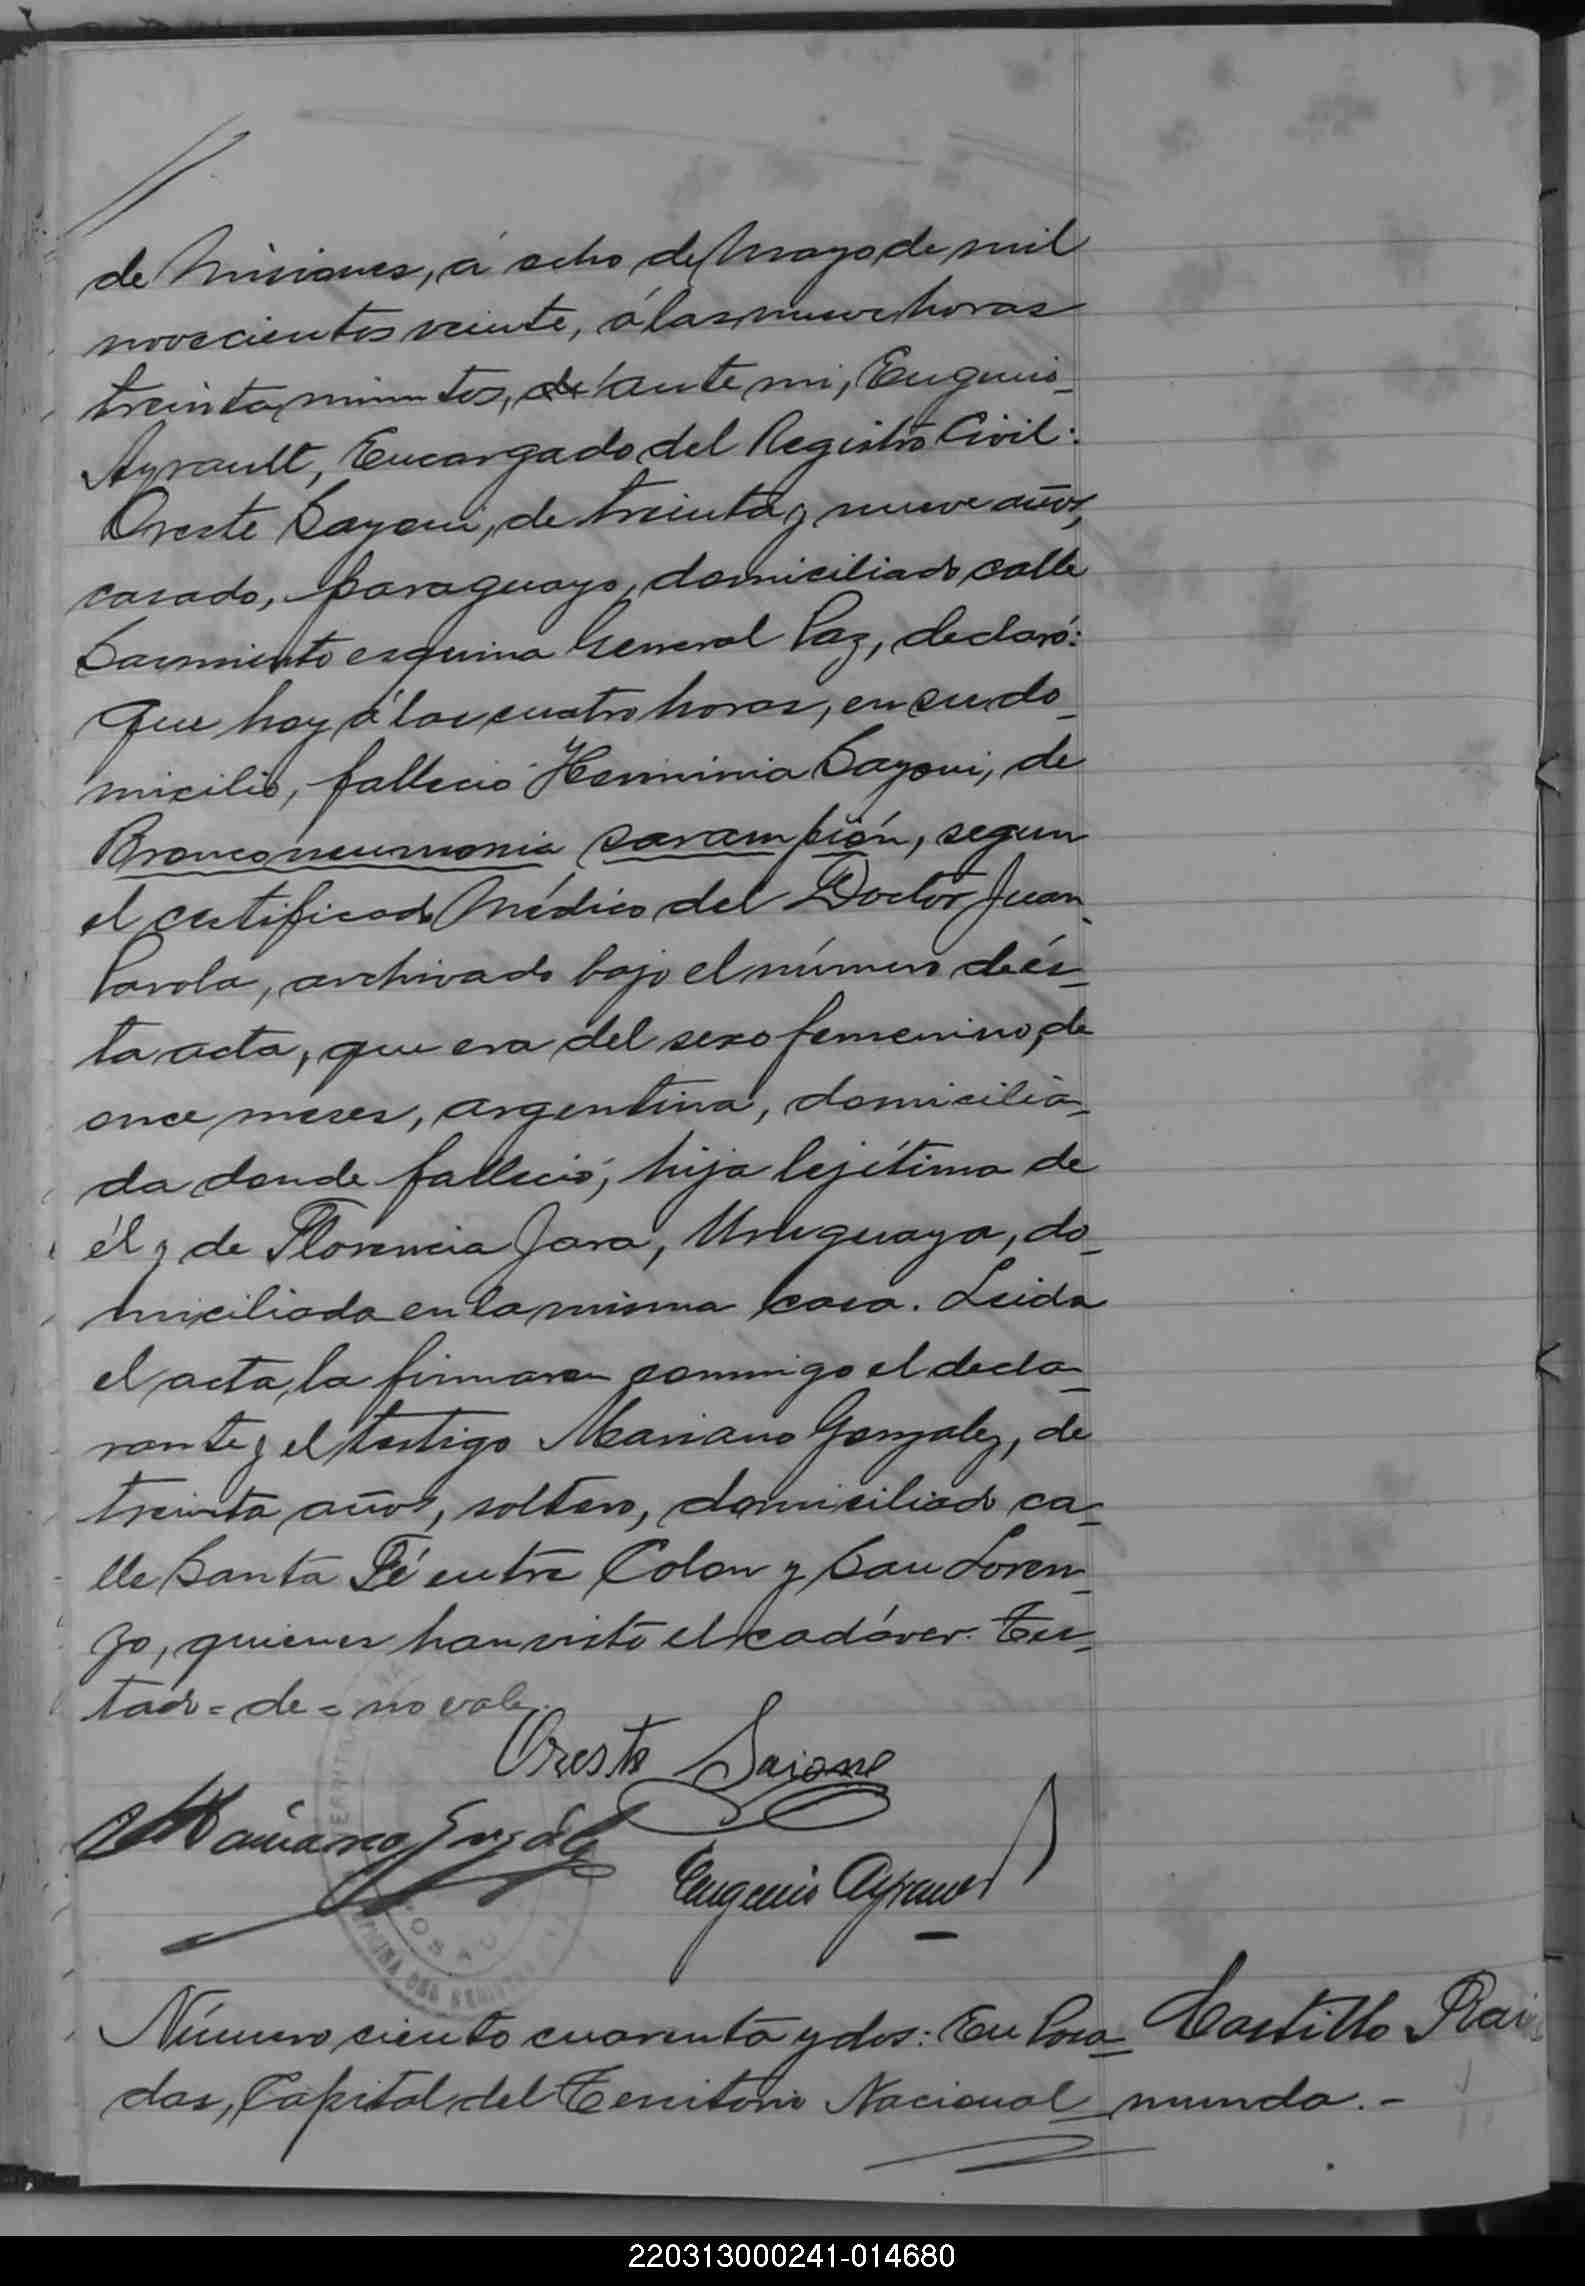 de Misiones, á ocho de Mayo de mil
novecientos veinte, á las nueve horas
treinta minutos, de ante mi, Eugenio
Ayrault, Encargado del Registro Civil:
Oreste Sayoni, de treinta y nueve años,
casado, paraguayo, domiciliado calle
Sarmiento esquina General Paz, declaró:
Que hoy á las cuatro horas, en su do_
micilio, falleció Herminia Sayoni, de
Bronconeumonia sarampión, segun
el certificado Médico del Doctor Juan
Parola, archivado bajo el número de és_
ta acta, que era del sexo femenino, de
once meses, argentina, domicilia_
da donde falleció, hija lejítima de
él y de Florencia Jara, Uruguaya, do_
miciliada en la misma casa. Leida
el acta, la firmaron conmigo el decla_
rante y el testigo Mariano Gonzalez, de
treinta años, soltero, domiciliado ca_
lle Santa Fé entre Colon y San Loren_
zo, quienes han visto el cadáver. Tes_
tado = de = no vale.
Oreste Saione
Mariano Gonzalez
Eugenio Ayrault
OFICINA DEL REGISTRO
Número ciento cuarenta y dos: En Posa_
das, Capital del Territorio Nacional
Castillo Rai
munda.-
220313000241-014680